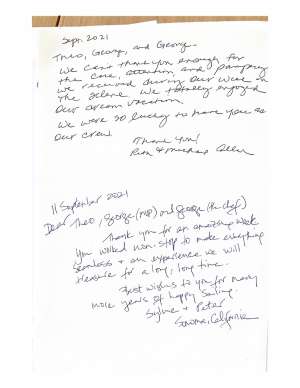 Sept. 2021
Theo, George, and George -
We can't thank you enough for
the care, attention, and pampering
we received during our week on
the Selene. We totally enjoyed
our dream vacation.
We were so lucky to have you as
our crew.
Thank you!
11 September 2021
Dear Theo, George (MP) and George (the chef)
Thank you for an amazing week
You worked non-stop to make everything
seamless + an experience we will
treasure for a long, long time.
Best wishes to you for many
more years of happy sailing.
Sylvie + Peter
Sonoma, California